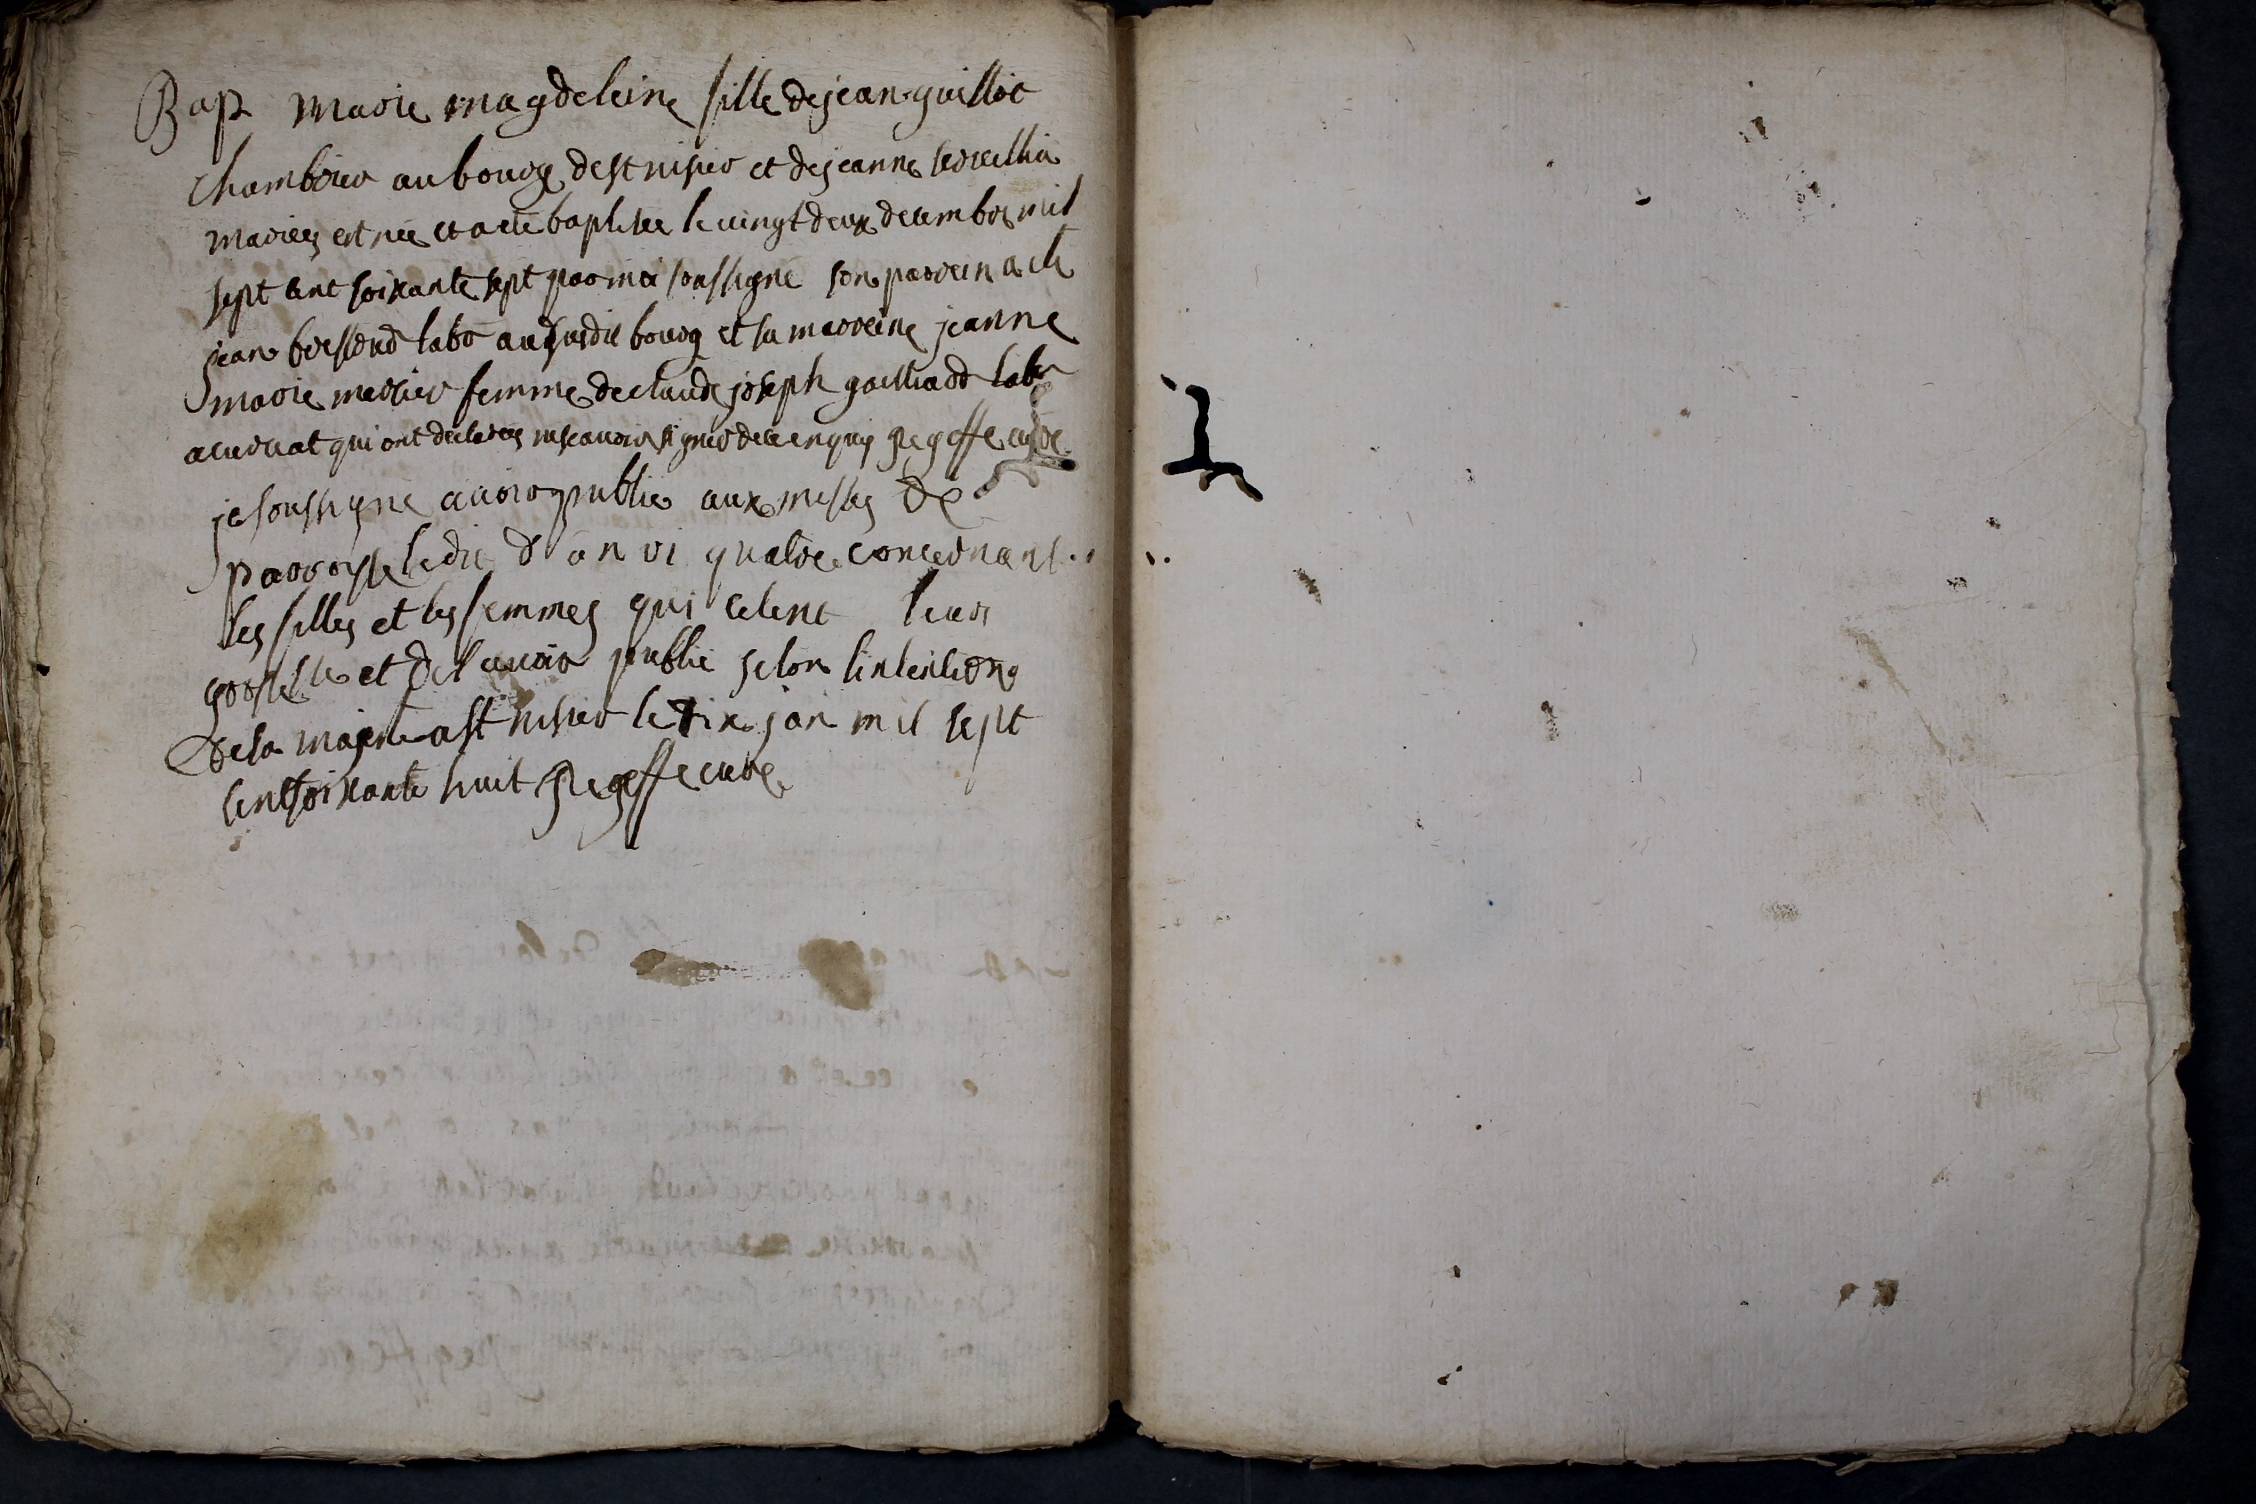 Bapt marie magdeleine fille de jean guillot
chambrier au bourg de st nisier et de jeanne
mariez est nee et a ete baptisee le vingt deux decembre mil
sept cent soixante sept par moi soussigné son parrein a ete
jean labr au susdit bourg et sa marreine jeanne
marie mercier femme de claude joseph gailliard labr
qui ont declarez ne scavoir signer de ce enquis curé
je soussigné avoir publie aux messes de
paroisse ledit d'anri quatre concernant
les filles et les femmes qui celent leur
grossesse et de l'avoir publie selon l'intention
de sa majeste a st nisier le dix jan mil sept
cent soixante huit curé